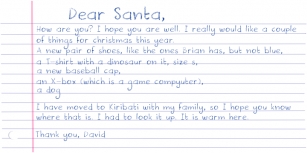 Dear Santa,
How are you? I hope you are well. I really would like a couple
of things for christmas this year.
A new pair of shoes, like the ones Brian has, but not blue,
a T-shirt with a dinosaur on it, size s,
a new baseball cap,
an X-box (which is a game compyter),
a dog
I have moved to Kiribati with my family, so I hope you know
where that is. I had to look it up. It is warm here.
Thank you, David